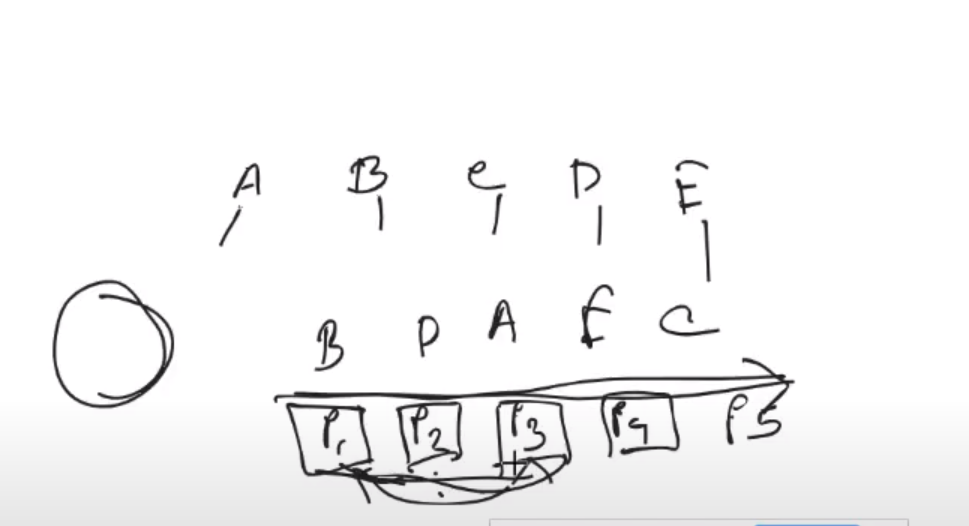 A B C D E
B D A E C
P1 P2 P3 P4 P5